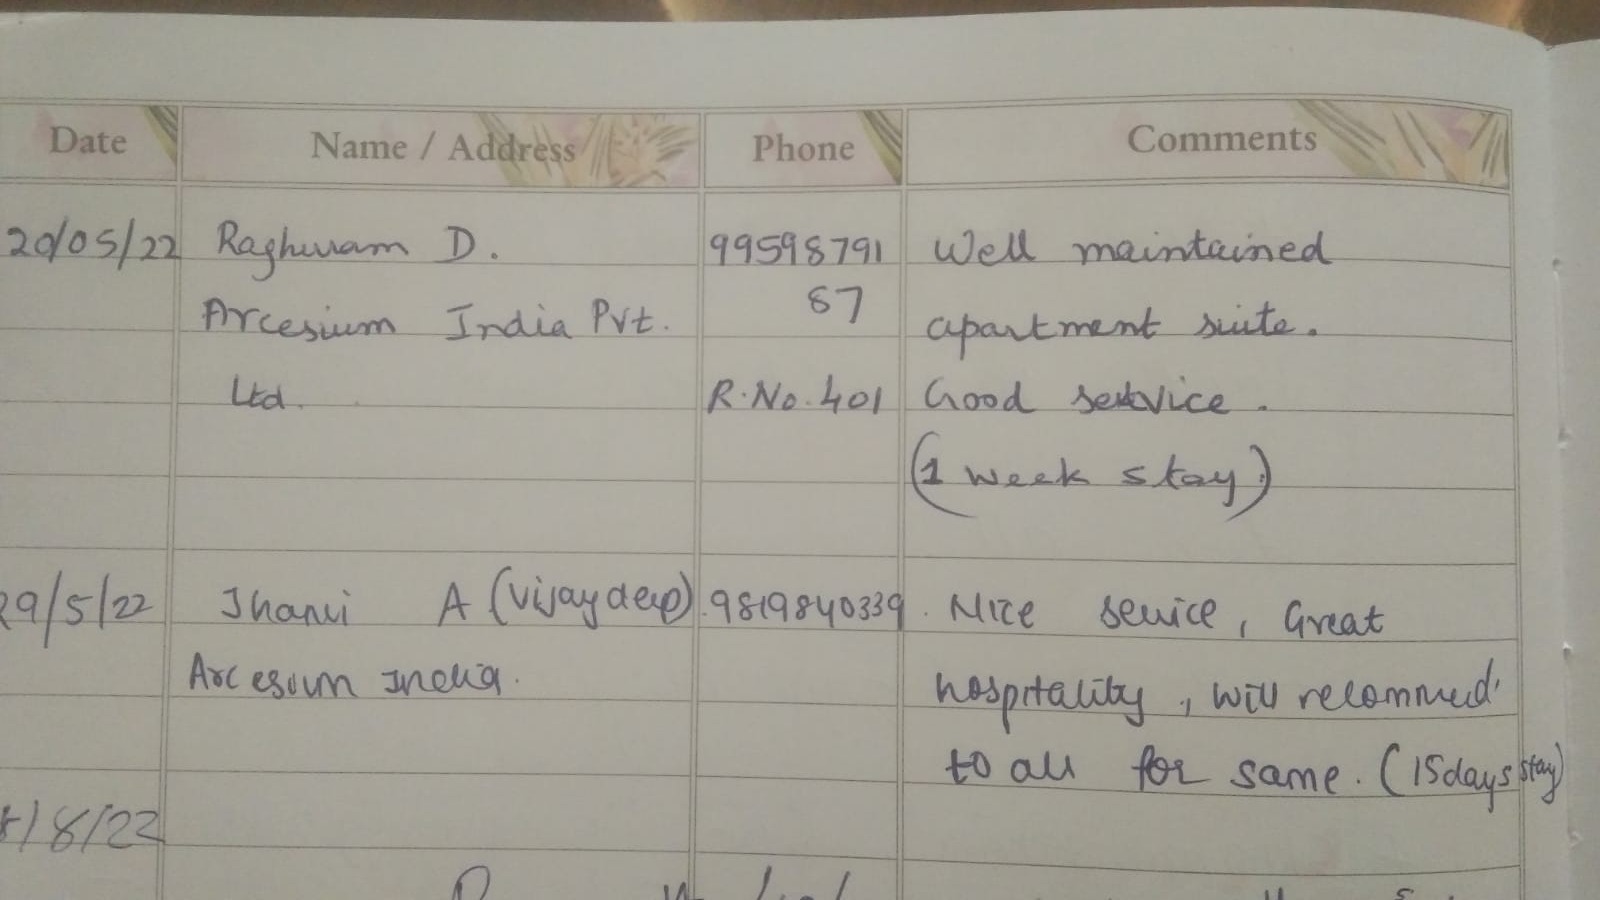 Date Name / Address Phone Comments
20/05/22 Raghuram D. 99598791 Well maintained
87
Arcesium India Pvt. apartment suite.
Ltd. R.No. 401 Good service.
(1 week stay)
29/5/22 Jhanvi A (Vijaydeep) 9819840339 Nice service, Great
Arcesium India. hospitality, will recommed
to all for same. (15days stay)
/8/22